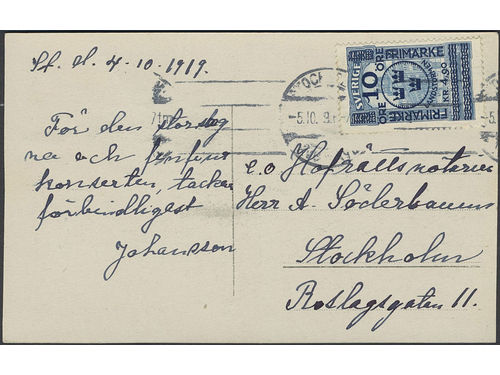 St. d. 4-10-1919.
För den
na och
konserten, tackar
förbindligest
Johansson
SVERIGE
10
ÖRE
ÖRE
FRIMÄRKE
FRIMÄRKE
NR 4,90
-5.10.
e.o Hofrättsnotarien
Herr A. Söderbaum
Stockholm
Roslagsgatan 11.